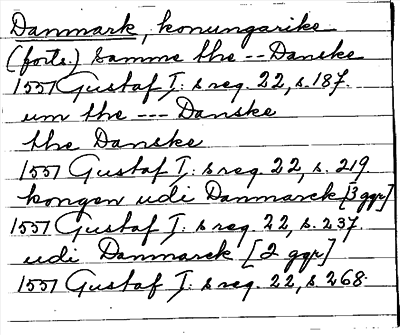 Danmark, konungarike
(forts.) Samme the -- Danske
1557 Gustaf I: s reg. 22, s. 187.
um the --- Danske
the Danske
1557 Gustaf I: s reg. 22, s. 219.
kongen udi Danmarck [3 ggr]
1557 Gustaf I: s reg. 22, s. 237.
udi Danmarck [2 ggr]
1557 Gustaf I: s reg. 22, s. 268.